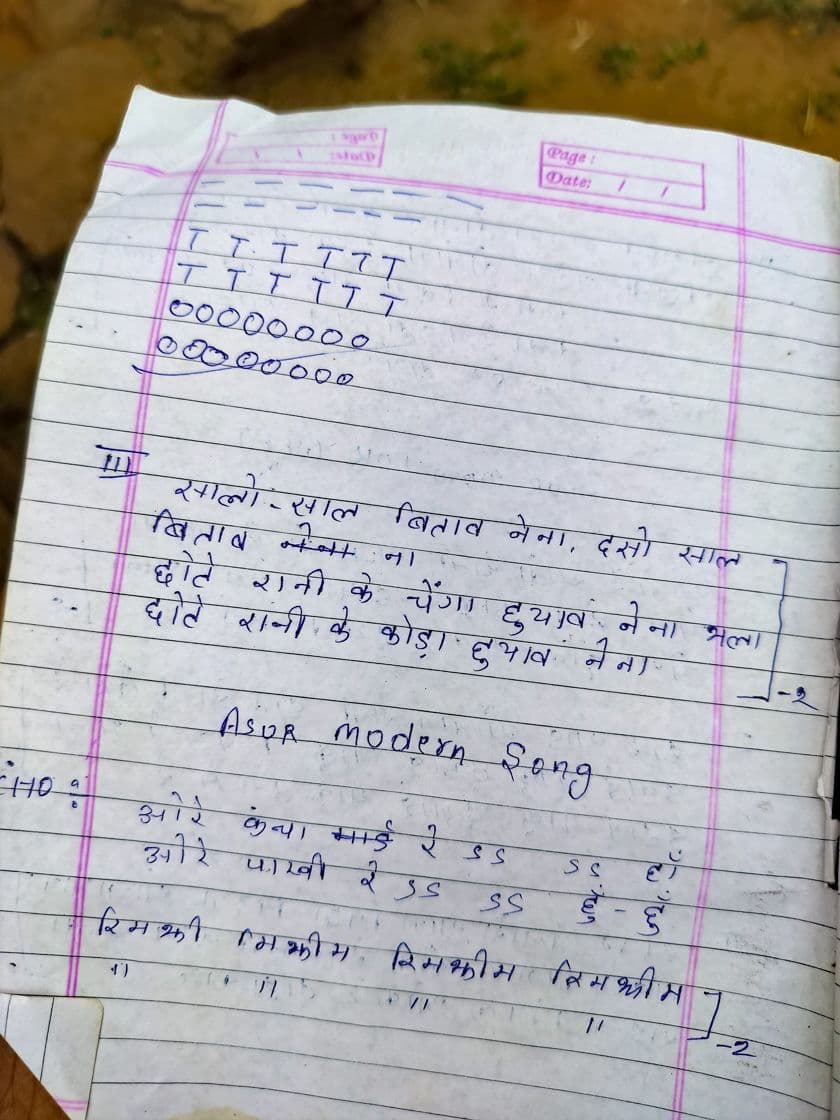 Page :
Date: / /
— — — — — —
— — — — — —
T T T T T T
T T T T T T
00000000
00000000
III
सालो - साल बिताव नेना, दसो साल
बिताव नेना ना
छोते रानी के चेंगा छुयाव नेना भला
छोते रानी के कोड़ा छुयाव नेना ]-2
Asur Modern Song
CHO :
ओरे कंचा माई रे ss ss हाँ
ओरे पाखी रे ss ss हुँ - हुँ
रिमझी मिझीम रिमझीम रिमझीम
" " " " ]-2